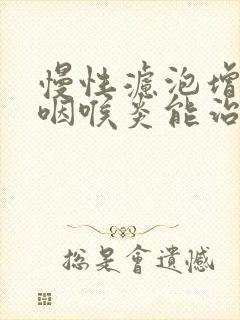 慢性濾泡增
咽喉炎能治
总是會遺憾